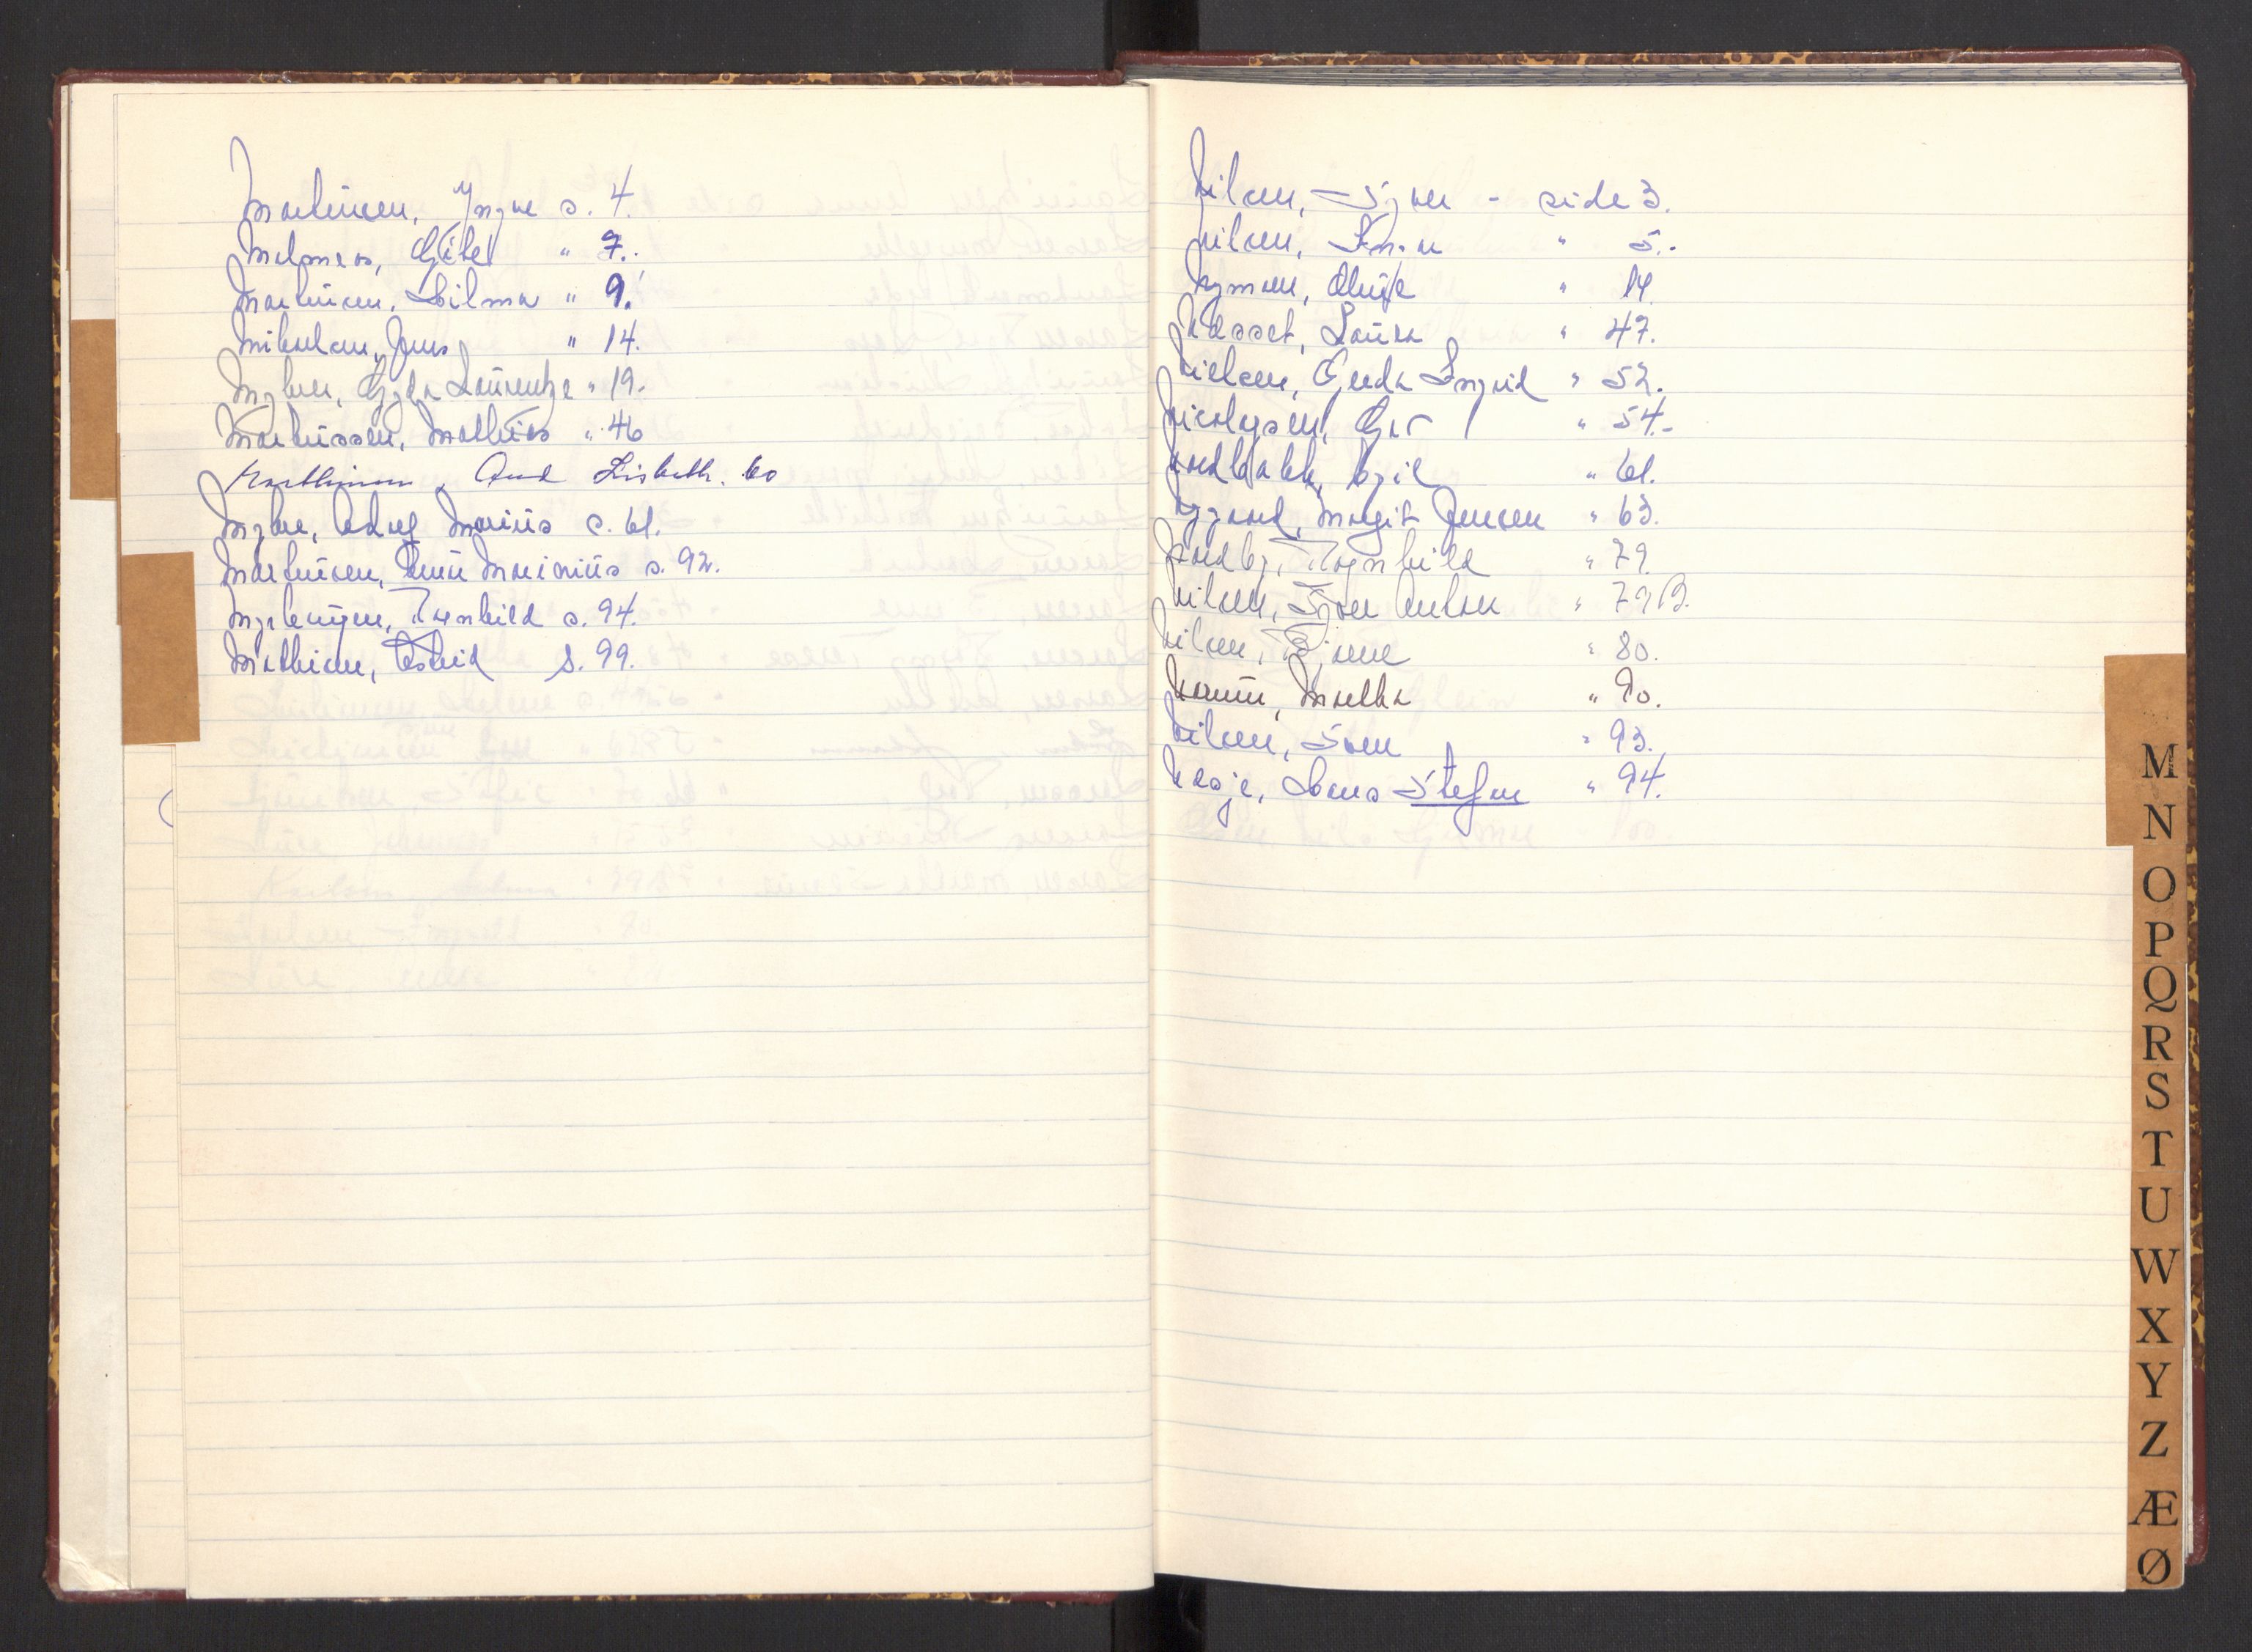 Martinsen, Yngve s. 4.
Malmnes, Gitel " 7.
Martinsen, Hilma " 9.
Mikalsen, Jens " 14.
Myhre, Gyda Laurentze " 19.
Martinssen, Mathias " 46
Martinsen, Aud Lisbeth. 60
Myhre, Adolf Marius s. 61.
Martinsen, Emil Marinius s. 92.
Myrbergen, Ragnhild s. 94.
Mathisen, Astrid s. 99.
Nilsen, Signe - side 3.
Nilsen, Inga " 5.
Nyman, Oluf " 14.
Næsset, Laura " 47.
Nielsen, Gerda Ingrid " 52.
Nicolaysen, Geir " 54.
Nordbakk, Egil " 61.
Nygaard, Margit Jensen " 63.
Nordby, Ragnhild " 79.
Nilsen, Anton " 79B.
Nilsen, Bjarne " 80.
Martha " 90.
Nilsen, Sven " 93.
Næsje, Hans Stefan " 94.
M
N
O
P
Q
R
S
T
U
W
X
Y
Z
Æ
Ø